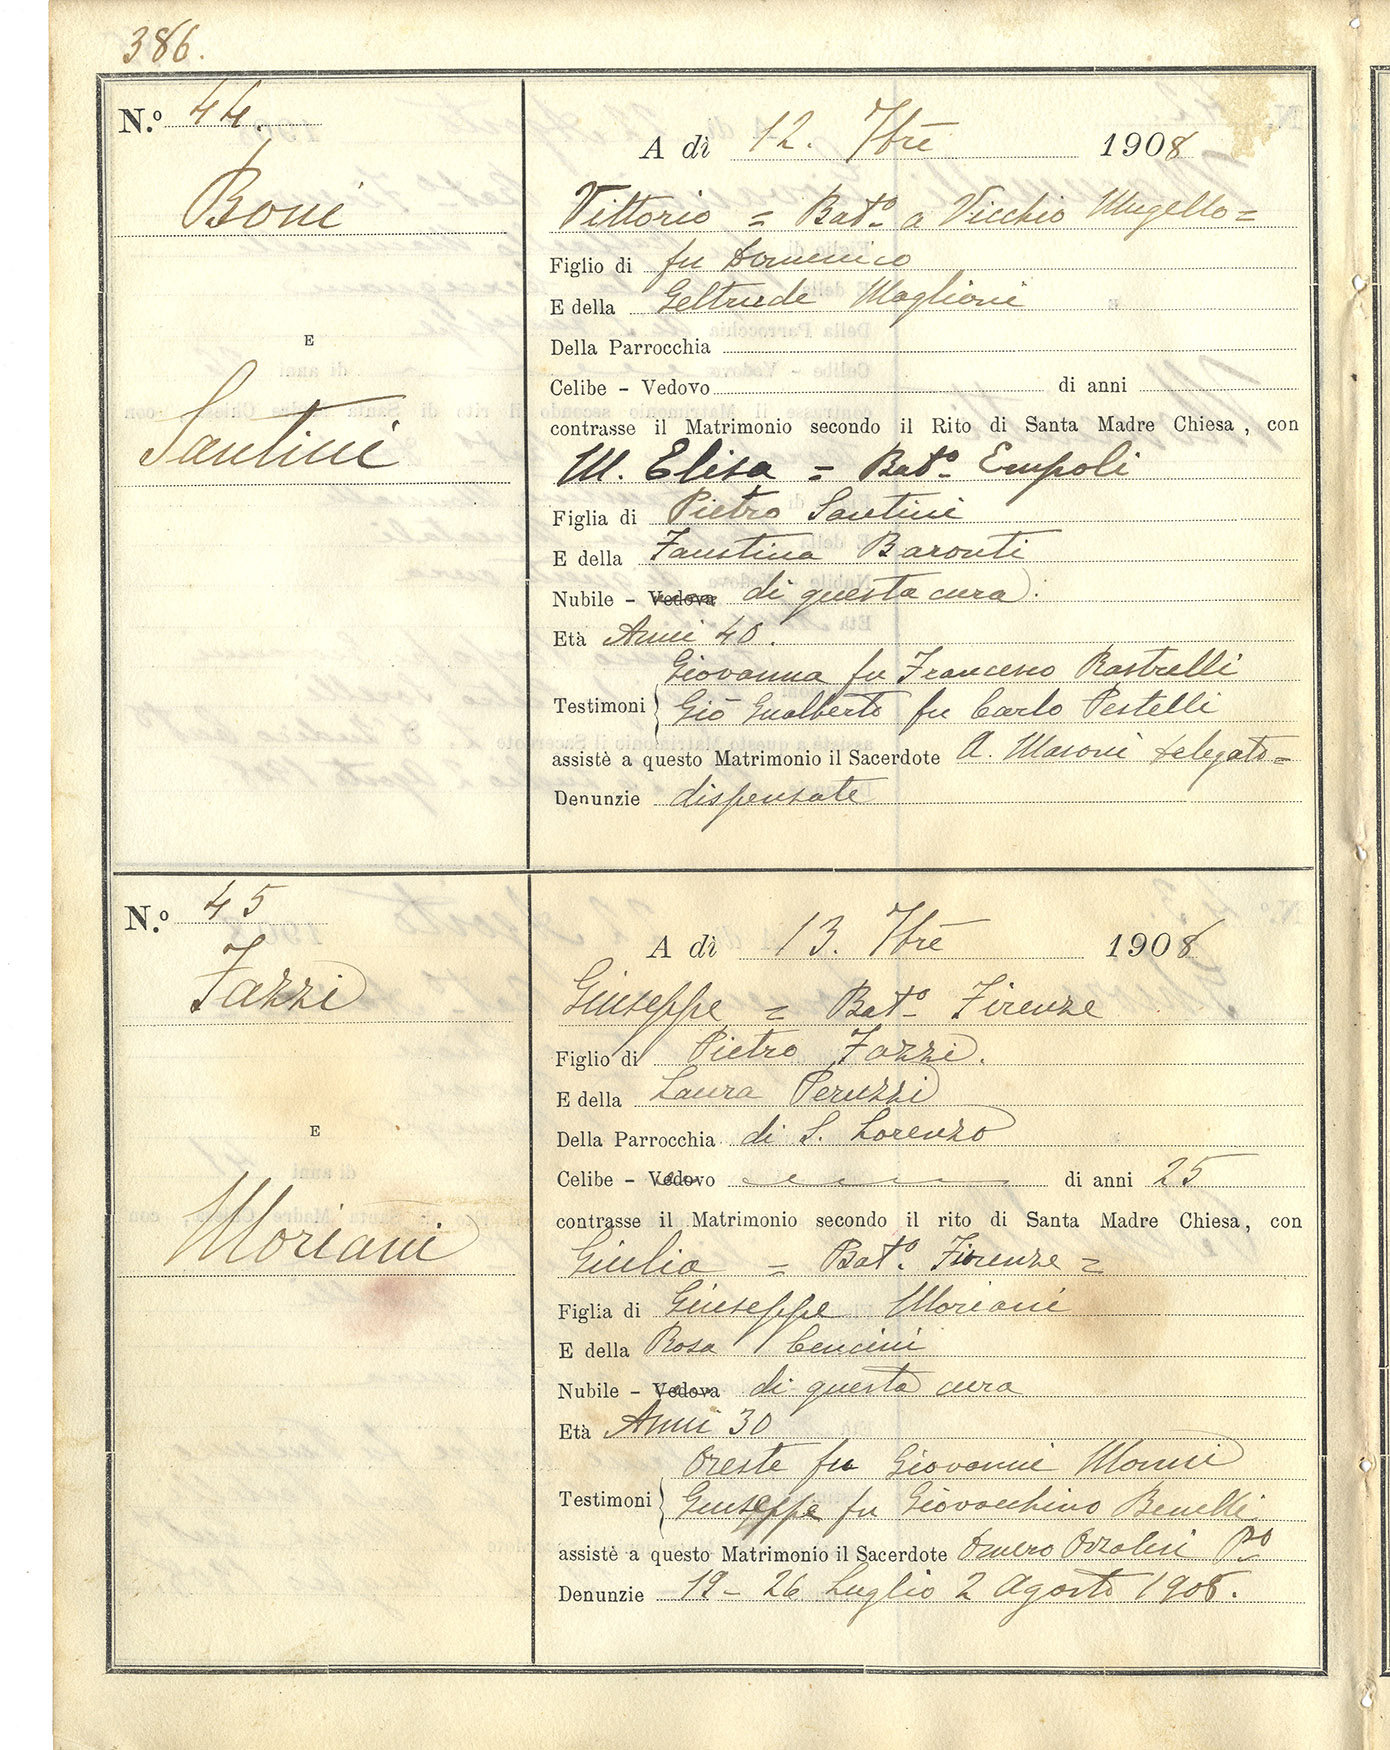 386.
N.º 44.
A dì 12. 7bre 1908
Boni
Vittorio = Bat.º a Vicchio Mugello =
Figlio di fu Domenico
E della Geltrude Maglioni
E
Della Parrocchia
Celibe - Vedovo di anni
contrasse il Matrimonio secondo il Rito di Santa Madre Chiesa, con
Santini
M. Elisa = Bat.º Empoli
Figlia di Pietro Santini
E della Faustina Baronti
Nubile - Vedova di questa cura.
Età Anni 40.
Giovanna fu Francesco Rastrelli
Testimoni Gio Gualberto fu Carlo Pestelli
assistè a questo Matrimonio il Sacerdote A. Masoni delegato =
Denunzie dispensate
N.º 45
A dì 13. 7bre 1908
Fazzi
Giuseppe = Bat.º Firenze
Figlio di Pietro Fazzi.
E della Laura Peruzzi
E
Della Parrocchia di S. Lorenzo
Celibe - Vedovo di anni 25
contrasse il Matrimonio secondo il rito di Santa Madre Chiesa, con
Moriani
Giulia = Bat.º Firenze =
Figlia di Giuseppe Moriani
E della Rosa Cencini
Nubile - Vedova di questa cura
Età Anni 30
Oreste fu Giovanni Monni
Testimoni Giuseppe fu Giovacchino Benelli
assistè a questo Matrimonio il Sacerdote
Denunzie 19 - 26 Luglio 2 Agosto 1908.